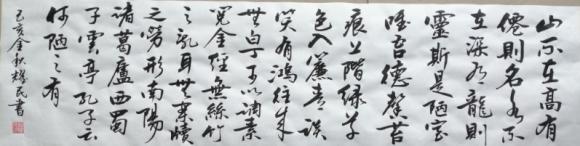 山不在高有
僊則名水不
在深有龍則
靈斯是陋室
唯吾德馨苔
痕上階綠草
色入簾青談
笑有鴻往来
無白丁可以調素
閱金經無絲竹
之亂耳無案牘
之勞形南陽
諸葛廬西蜀
子雲亭孔子云
何陋之有
己亥金秋耀民書